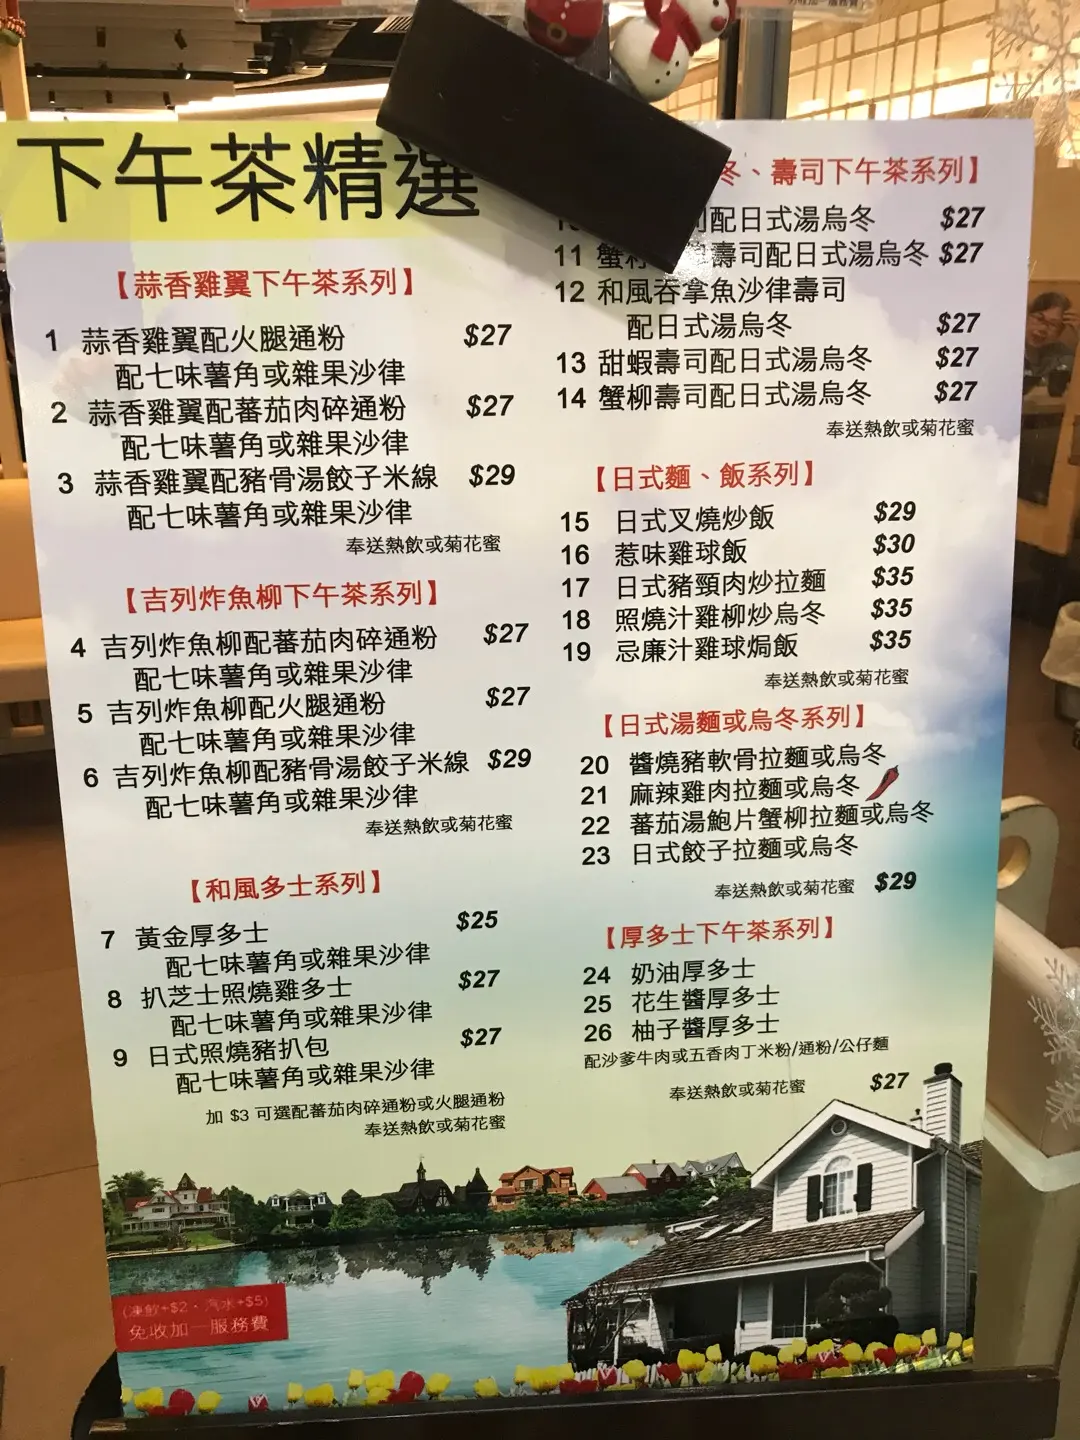 下午茶精選
【蒜香雞翼下午茶系列】
1 蒜香雞翼配火腿通粉 $27
配七味薯角或雜果沙律
2 蒜香雞翼配蕃茄肉碎通粉 $27
配七味薯角或雜果沙律
3 蒜香雞翼配豬骨湯餃子米線 $29
配七味薯角或雜果沙律
奉送熱飲或菊花蜜
【吉列炸魚柳下午茶系列】
4 吉列炸魚柳配蕃茄肉碎通粉 $27
配七味薯角或雜果沙律
5 吉列炸魚柳配火腿通粉 $27
配七味薯角或雜果沙律
6 吉列炸魚柳配豬骨湯餃子米線 $29
配七味薯角或雜果沙律
奉送熱飲或菊花蜜
【和風多士系列】
7 黃金厚多士 $25
配七味薯角或雜果沙律
8 扒芝士照燒雞多士 $27
配七味薯角或雜果沙律
9 日式照燒豬扒包 $27
配七味薯角或雜果沙律
加 $3 可選配蕃茄肉碎通粉或火腿通粉
奉送熱飲或菊花蜜
(凍飲+$2・汽水+$5)
免收加一服務費
冬、壽司下午茶系列】
司配日式湯烏冬 $27
11 蟹 壽司配日式湯烏冬 $27
12 和風吞拿魚沙律壽司
配日式湯烏冬 $27
13 甜蝦壽司配日式湯烏冬 $27
14 蟹柳壽司配日式湯烏冬 $27
奉送熱飲或菊花蜜
【日式麵、飯系列】
15 日式叉燒炒飯 $29
16 惹味雞球飯 $30
17 日式豬頸肉炒拉麵 $35
18 照燒汁雞柳炒烏冬 $35
19 忌廉汁雞球焗飯 $35
奉送熱飲或菊花蜜
【日式湯麵或烏冬系列】
20 醬燒豬軟骨拉麵或烏冬
21 麻辣雞肉拉麵或烏冬
22 蕃茄湯鮑片蟹柳拉麵或烏冬
23 日式餃子拉麵或烏冬
奉送熱飲或菊花蜜 $29
【厚多士下午茶系列】
24 奶油厚多士
25 花生醬厚多士
26 柚子醬厚多士
配沙爹牛肉或五香肉丁米粉/通粉/公仔麵
奉送熱飲或菊花蜜 $27